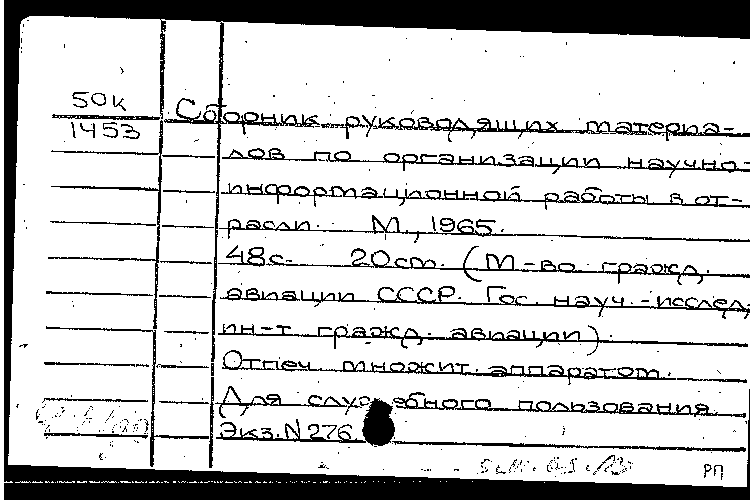 50к
1453
Сборник руководящих материа-
лов по организации научно-
информационной работы в от-
расли. М., 1965.
48с. 20cm. (М-во гражд.
авиации СССР. Гос. науч.-исслед.
ин-т гражд. авиации).
Отпеч. множит. аппаратом.
Для служебного пользования.
Экз. N 276
РП